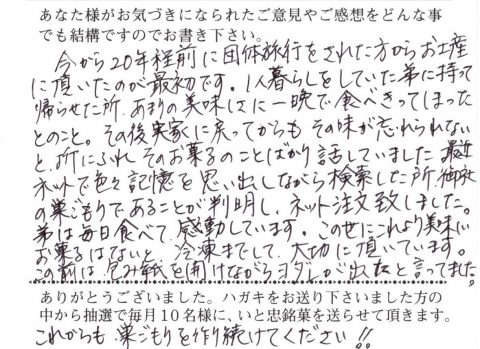 あなた様がお気づきになられたご意見やご感想をどんな事
でも結構ですのでお書き下さい。
今から20年程前に団体旅行をされた方からお土産
に頂いたのが最初です。1人暮らしをしていた弟に持って
帰らせた所、あまりの美味しさに一晩で食べきってしまった
とのこと。その後実家に戻ってからも その味が忘れられない
と、折にふれ そのお菓子のことばかり話していました。最近
ネットで色々記憶を思い出しながら検索した所、御社
の巣ごもりであることが判明し、ネット注文致しました。
弟は毎日食べて、感動しています。この世にこれより美味しい
お菓子はないと、冷凍までして、大切に頂いています。
この前は、包み紙を開けながらヨダレが出たと言ってました。
ありがとうございました。ハガキをお送り下さいました方の
中から抽選で毎月10名様に、いと忠銘菓を送らせて頂きます。
これからも 巣ごもりを作り続けてください!!